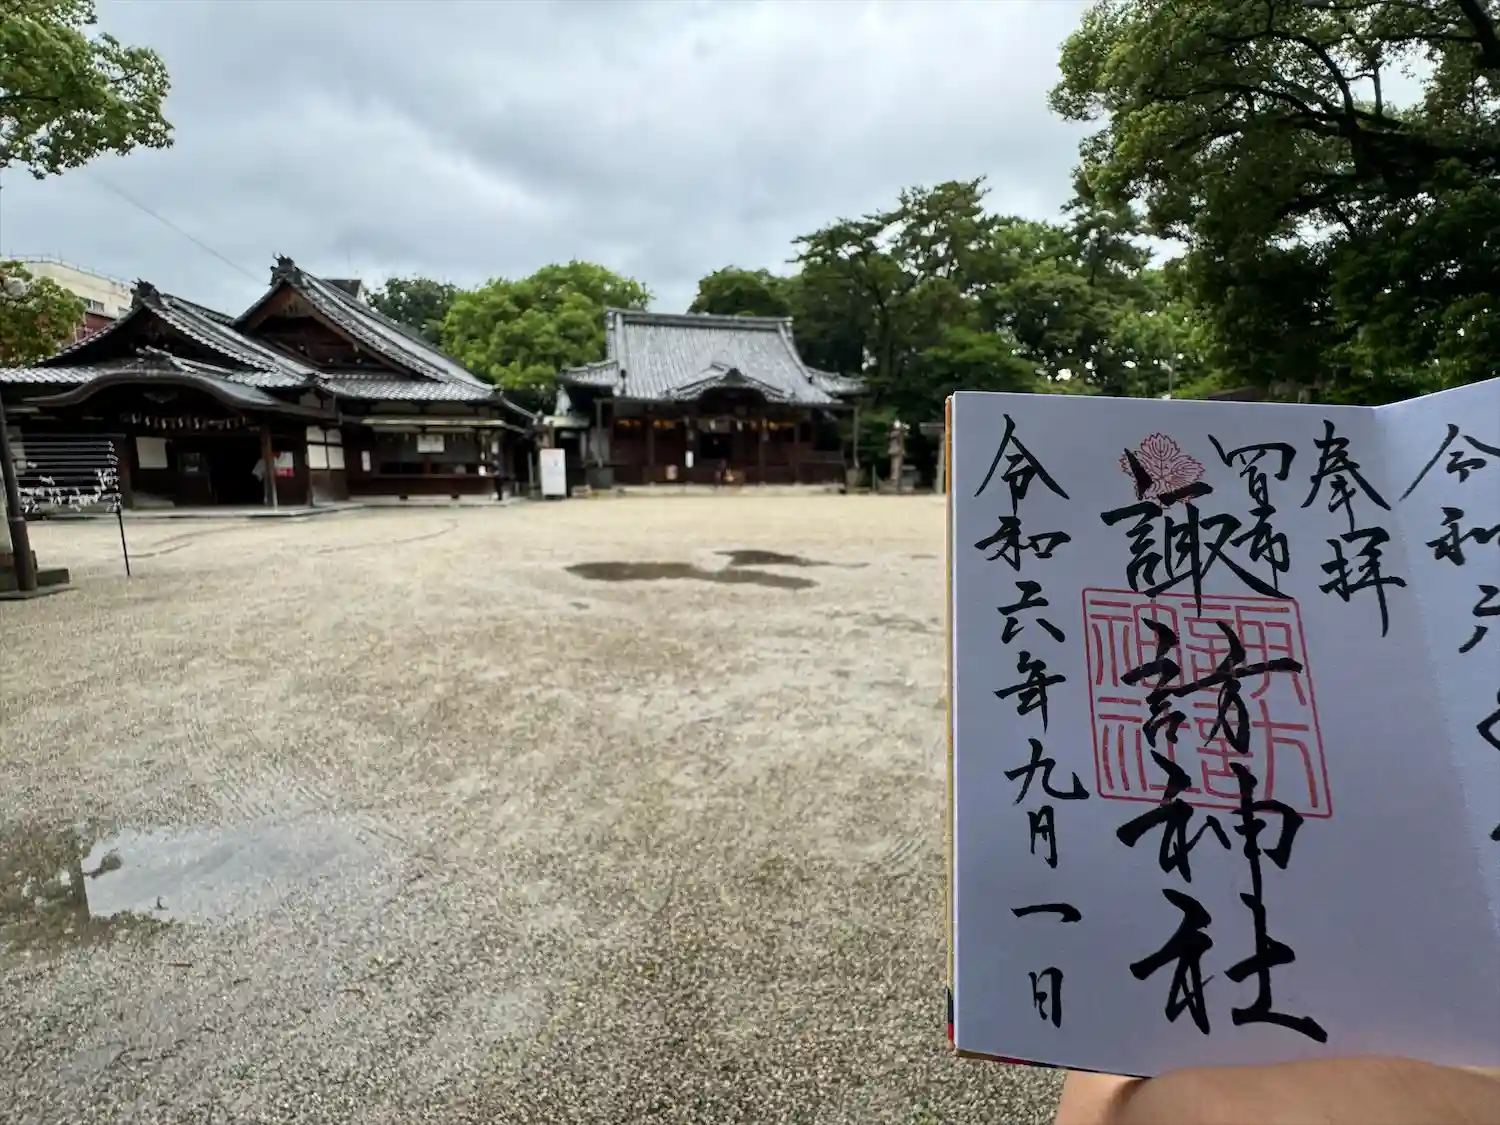 奉拝
四日市
諏訪神社
諏訪神社
令和六年九月一日
令和六